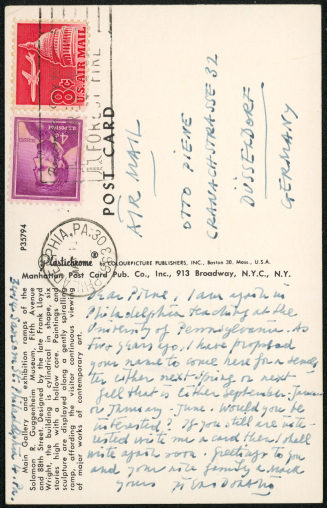 8¢
U.S. AIR MAIL
4¢
U.S. POSTAGE
FOREST FIRE
PHILADELPHIA, PA.
POST CARD
AIR MAIL
OTTO PIENE
CRANACHSTRASSE 32
DÜSSELDORF
GERMANY
P35794
Plastichrome ® by COLOURPICTURE PUBLISHERS, INC., Boston 30, Mass., U.S.A.
Manhattan Post Card Pub. Co., Inc., 913 Broadway, N.Y.C., N.Y.
Main Gallery and exhibition ramps of the
Solomon R. Guggenheim Museum, Fifth Avenue
and 88th Street. Designed by the late Frank Lloyd
Wright, the building is cylindrical in shape, six
stories high with a hollow core. Paintings and
sculpture are displayed along a gently spiralling
ramp, affording the visitor continuous viewing
of major works of contemporary art.
Dear Piene, I am again in
Philadelphia teaching at the
University of Pennsylvania. As
two years ago, I have proposed
your name to come here for a semes-
ter either next spring or next
fall that is either September - January
or January - June. Would you be
interested? If you still are inte-
rested write me a card then I shall
write again soon. Greetings to you
and your nice family
yours Piero Dorazio